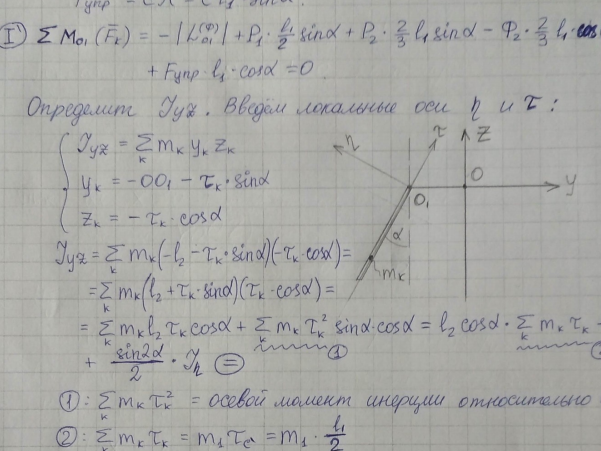 Fупр
I) ΣM₀₁(F̄ₖ) = -|L₀₁^(Ф)| + P₁·l₁/2 sinα + P₂·2/3 l₁ sinα - Φ₂·2/3 l₁·cos
+ Fупр·l₁·cosα = 0
Определим Jyz. Введём локальные оси η и τ:
Jyz = Σₖ mₖ yₖ zₖ
yₖ = -OO₁ - τₖ·sinα
zₖ = -τₖ·cosα
η
τ
z
O
y
O₁
α
mₖ
Jyz = Σₖ mₖ(-l₂ - τₖ·sinα)(-τₖ·cosα) =
= Σₖ mₖ(l₂ + τₖ·sinα)(τₖ·cosα) =
= Σₖ mₖ l₂ τₖ cosα + Σₖ mₖ τₖ² sinα·cosα = l₂ cosα · Σₖ mₖ τₖ +
①
+ sin2α/2 · Jη =
①: Σₖ mₖ τₖ² = осевой момент инерции относительно
②: Σₖ mₖ τₖ = m₁ τc = m₁ · l₁/2